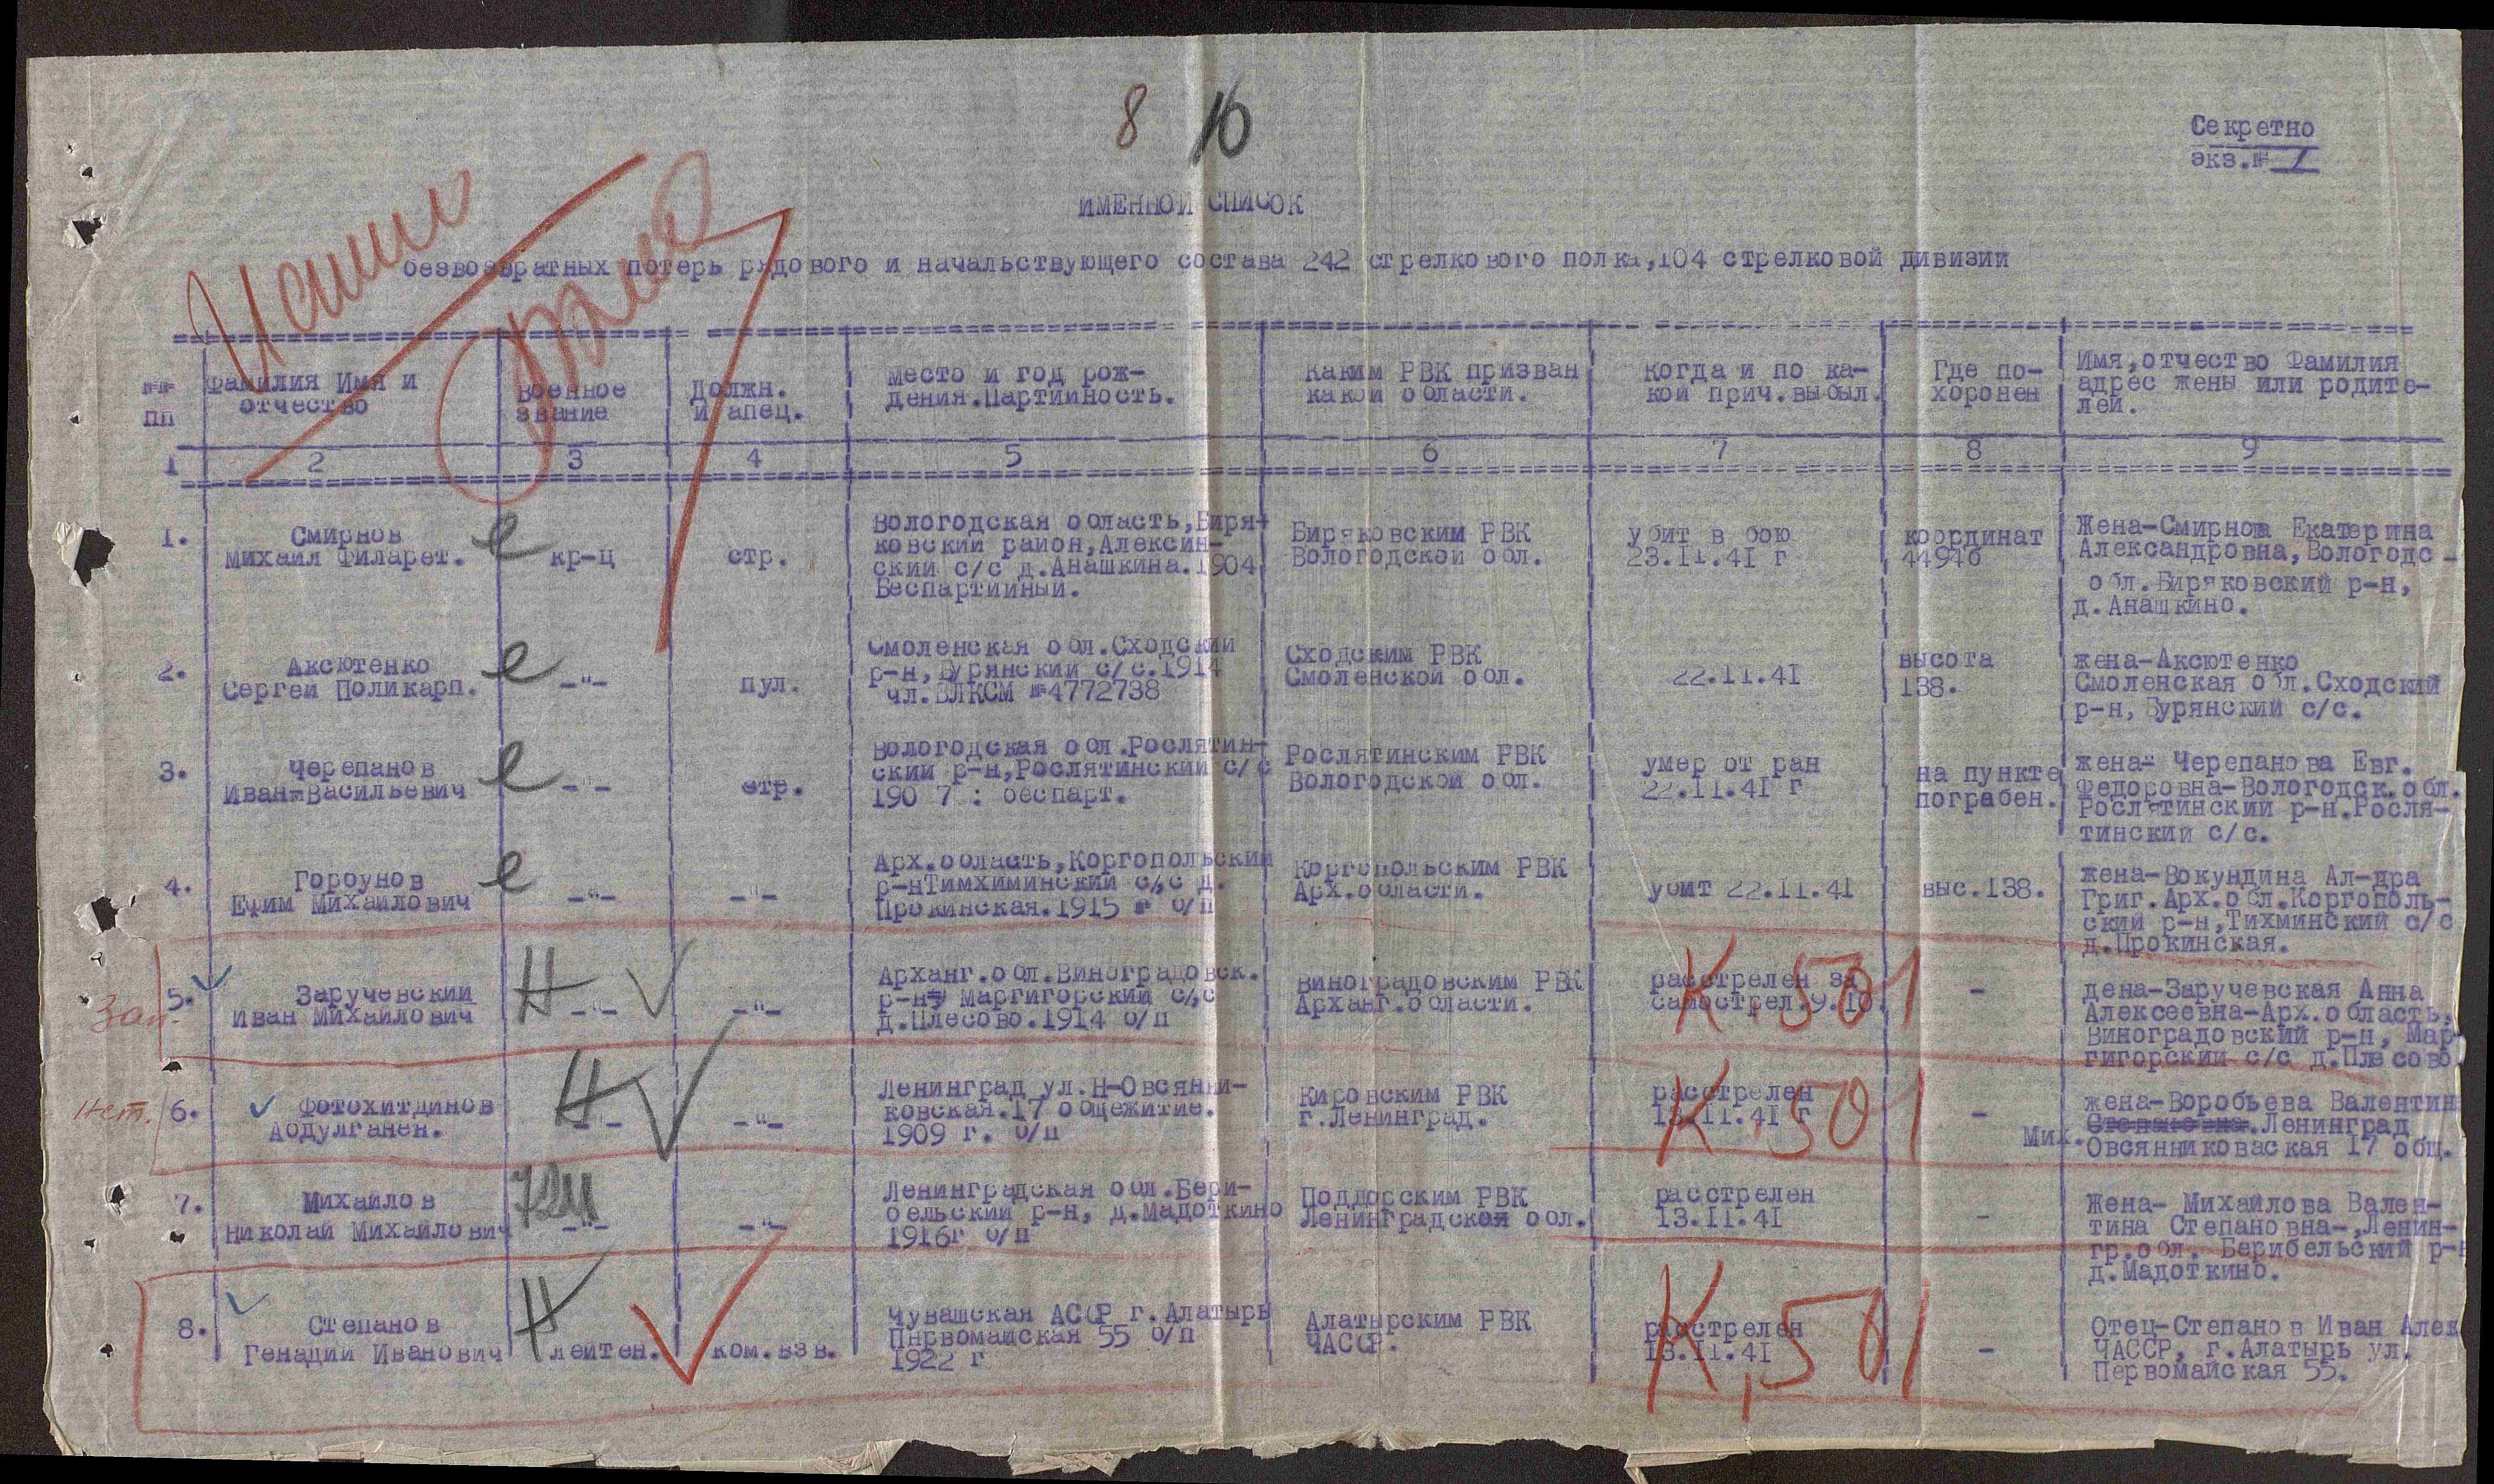 8 16
Секретно
экз.№ 1
ИМЕННОЙ СПИСОК
безвозвратных потерь рядового и начальствующего состава 242 стрелкового полка,104 стрелковой дивизии
№№ пп
Фамилия Имя и
отчество
Военное
звание
Должн.
и апец.
Место и год рож-
дения.Партийность.
Каким РВК призван
какой области.
Когда и по ка-
кой прич.выбыл.
Где по-
хоронен
Имя,отчество Фамилия
адрес жены или родите-
лей.
1 2 3 4 5 6 7 8 9
1.
Смирнов
Михаил Филарет.
кр-ц
стр.
Вологодская область,Биря-
ковский район,Алексин-
ский с/с д.Анашкина.1904
Беспартийный.
Биряковским РВК
Вологодской обл.
убит в бою
23.11.41 г
координат
44946
Жена-Смирнова Екатерина
Александровна,Вологодс-
обл.Биряковский р-н,
д.Анашкино.
2.
Аксютенко
Сергей Поликарп.
-"-
пул.
Смоленская обл.Сходский
р-н,Бурянский с/с.1914
чл.ВЛКСМ №4772738
Сходским РВК
Смоленской обл.
22.11.41
высота
138.
жена-Аксютенко
Смоленская обл.Сходский
р-н,Бурянский с/с.
3.
Черепанов
Иван Васильевич
-"-
стр.
Вологодская обл.Рослятин-
ский р-н,Рослятинский с/с
190 7 : беспарт.
Рослятинским РВК
Вологодской обл.
умер от ран
22.11.41 г
на пункте
пограбен.
жена- Черепанова Евг.
Федоровна-Вологодск.обл.
Рослятинский р-н.Росля-
тинский с/с.
4.
Горбунов
Ефим Михайлович
-"-
-"-
Арх.область,Коргопольский
р-нТимхиминский с/с д.
Прокинская.1915 г б/п
Коргопольским РВК
Арх.области.
убит 22.11.41
выс.138.
жена-Вокундина Ал-дра
Григ.Арх.обл.Коргополь-
ский р-н,Тихминский с/с
д.Прокинская.
Зап.
5.
Заручевский
Иван Михайлович
Н
-"-
-"-
Арханг.обл.Виноградовск.
р-н, Маргигорский с/с
д.Плесово.1914 б/п
Виноградовским РВК
Арханг.области.
расстрелен за
самострел.9.10.
К,501
-
дена-Заручевская Анна
Алексеевна-Арх.область,
Виноградовский р-н, Мар-
гигорский с/с д.Плесово
6.
Фотохитдинов
Абдулганен.
Н
-"-
-"-
Ленинград ул.Н-Овсянни-
ковская.17 общежитие.
1909 г. б/п
Кировским РВК
г.Ленинград.
расстрелен
13.11.41 г
К,501
-
жена-Воробьева Валентин
Степановна.Ленинград
Мих.Овсянниковаская 17 общ.
7.
Михайлов
Николай Михайлович
-"-
-"-
Ленинградская обл.Бери-
бельский р-н, д.Мадоткино
1916г б/п
Поддорским РВК
Ленинградская обл.
расстрелен
13.11.41
-
Жена- Михайлова Вален-
тина Степановна-,Ленин-
гр.обл. Берибельский р-н
д.Мадоткино.
8.
Степанов
Генадий Иванович
Н
лейтен.
ком.взв.
Чувашская АССР г.Алатырь
Первомайская 55 б/п
1922 г
Алатырским РВК
ЧАССР.
расстрелен
13.11.41
К,501
-
Отец-Степанов Иван Алек
ЧАССР, г.Алатырь ул.
Первомайская 55.